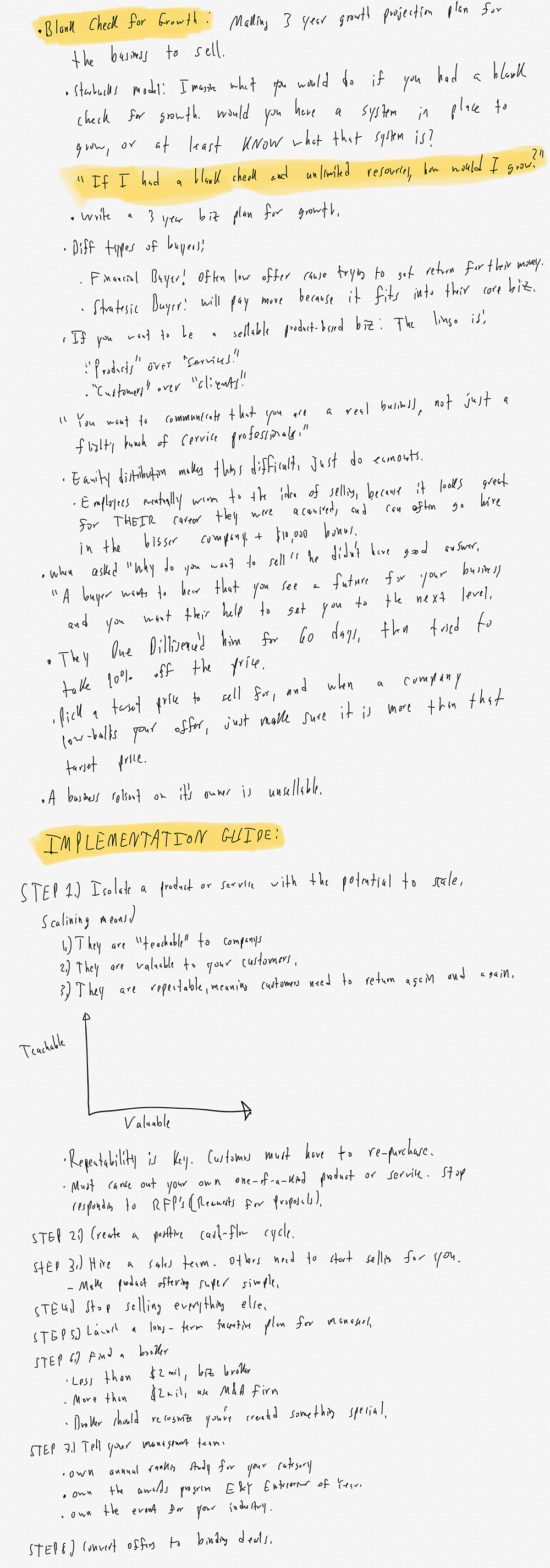 • Blank Check for Growth: Making 3 year growth projection plan for
the business to sell.
• Starbucks model: Imagine what you would do if you had a blank
check for growth. would you have a system in place to
grow, or at least KNOW what that system is?
"If I had a blank check and unlimited resources, how would I grow?"
• Write a 3 year biz plan for growth.
• Diff types of buyers:
• Financial Buyer: Often low offer cause trying to get return for their money.
• Strategic Buyer: will pay more because it fits into their core biz.
• If you want to be a sellable product-based biz: The lingo is:
• "Products" over "services"
• "Customers" over "clients"
" You want to communicate that you are a real business, not just a
bunch of service professionals."
• Equity distribution makes this difficult, just do earnouts.
• Employees mentally warm to the idea of selling, because it looks great
for THEIR career they were acquired, and can often go hire
in the bigger company + $10,000 bonus.
• When asked "Why do you want to sell" he didn't have good answer.
"A buyer wants to hear that you see a future for your business
and you want their help to get you to the next level.
• They Due Dilligence'd him for 60 days, then tried to
take 90% off the price.
• Pick a target price to sell for, and when a company
low-balls your offer, just make sure it is more than that
target price.
• A business reliant on it's owner is unsellable.
IMPLEMENTATION GUIDE:
STEP 1.) Isolate a product or service with the potential to scale.
Scalining means)
1.) They are "teachable" to companys
2.) They are valuable to your customers.
3.) They are repeatable, meaning customers need to return again and again.
Teachable
Valuable
• Repeatability is Key. Customers must have to re-purchase.
• Must carve out your own one-of-a-kind product or service. Stop
responding to RFP's (Requests for Proposals).
STEP 2.) Create a positive cash-flow cycle.
STEP 3.) Hire a sales team. Others need to start selling for you.
– Make product offering super simple.
STE4.) Stop selling everything else.
STEP5.) Launch a long-term incentive plan for managers.
STEP 6.) Find a broker
• Less than $2mil, biz broker
• More than $2mil, use M&A firm
• Broker should recognize you're created something special.
STEP 7.) Tell your management team.
• own annual ranking study for your category
• own the awards program E&Y Entrepreneur of Year.
• own the event for your industry.
STEP 8.) Convert offers to binding deals.